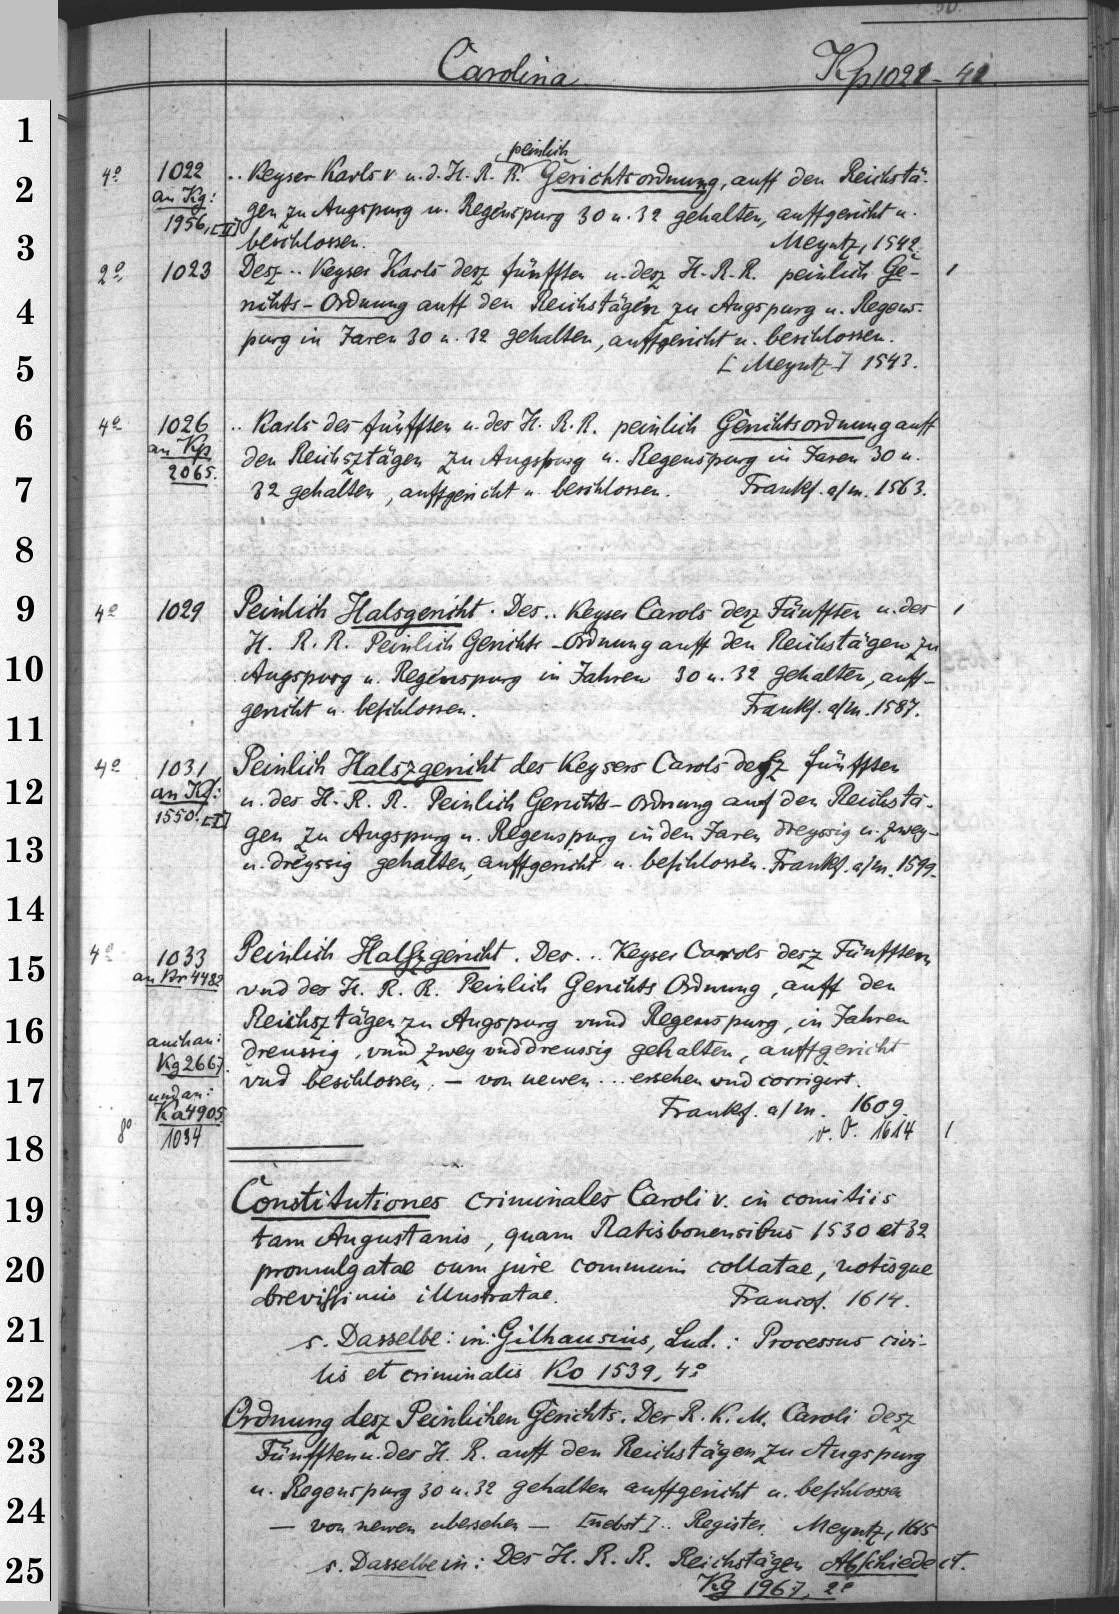 50.
Carolina Kp 1021-41
1
2
3
4
5
6
7
8
9
10
11
12
13
14
15
16
17
18
19
20
21
22
23
24
25
peinlich
4° 1022 .. Keyser Karls v u. d. H. R. R. Gerichtsordnung, auff den Reichstä-
an Kg: gen zu Augspurg u. Regenspurg 30 u. 32 gehalten, auffgericht u.
1956,[II] beschlossen. Meyntz, 1542.
2° 1023 Desz .. Keyser Karls desz fünfften u. desz H. R. R. peinlich Ge-
richts-Ordnung auff den Reichstägen zu Augspurg u. Regens-
purg in Jaren 30 u. 32 gehalten, auffgericht u. beschlossen.
[Meyntz] 1543.
4° 1026 .. Karls des fünfften u. des H. R. R. peinlich Gerichtsordnung auff
an Kp den Reichsztägen zu Augspurg u. Regenspurg in Jaren 30 u.
2065. 32 gehalten, auffgericht u. beschlossen. Frankf. a/m. 1563.
4° 1029 Peinlich Halsgericht. Des .. Keyser Carols desz Fünfften u. des
H. R. R. Peinlich Gerichts-Ordnung auff den Reichstägen zu
Augspurg u. Regenspurg in Jahren 30 u. 32 gehalten, auff-
gericht u. beschlossen. Frankf. a/m. 1587.
4° 1031 Peinlich Halszgericht des Keysers Carols desz fünfften
an Kf: u. des H. R. R. Peinlich Gerichts-Ordnung auf den Reichstä-
1550.[I] gen zu Augspurg u. Regenspurg in den Jaren dreyssig u. zwey-
u. dreyssig gehalten, auffgericht u. beschlossen. Frankf. a/m. 1599.
4° 1033 Peinlich Halszgericht. Des .. Keyser Carols desz Fünfften
an Br 4482 vnd des H. R. R. Peinlich Gerichts Ordnung, auff den
Reichsztägen zu Augspurg vnnd Regenspurg, in Jahren
auch an: dreussig, vnnd zwey vnd dreussig gehalten, auffgericht
Kg 2667. vnd beschlossen. - von newen ... ersehen vnd corrigirt.
und an:
Ka 4905 Frankf. a/m. 1609.
8° 1034 v. O. 1614
Constitutiones criminales Caroli v. in comitiis
tam Augustanis, quam Ratisbonensibus 1530 et 32
promulgatae cum jure communi collatae, notisque
brevissimis illustratae. Francof. 1614.
s. Dasselbe: in: Gilhausius, Lud.: Processus civi-
lis et criminalis Ko 1539, 4°
Ordnung desz Peinlichen Gerichts. Der R. K. M. Caroli desz
Fünfften u. des H. R. auff den Reichstägen zu Augspurg
u. Regenspurg 30 u. 32 gehalten auffgericht u. beschlossen
- von newen ubersehen - [nebst] .. Register. Meyntz, 1615
s. Dasselbe in: Des H. R. R. Reichstägen Abschiede ect.
Kg 1967, 2°